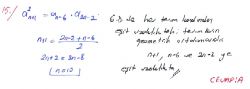 15/ a²ₙ₊₁ = aₙ₋₆ · a₂ₙ₋₂
n+1 = (2n-2+n-6)/2
2n+2 = 3n-8
n=10
G.D de her terim kendinden
eşit uzaklıktaki terimlerin
geometrik ortalamasıdır
n+1, n-6 ve 2n-2 ye
eşit uzaklıkta